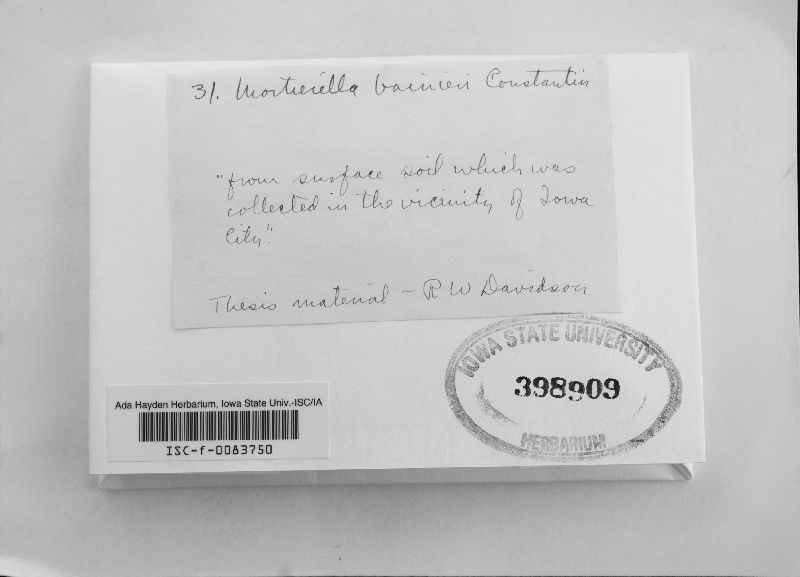 31. Mortierella bainieri Constantin
"from surface soil which was
collected in the vicinity of Iowa
City."
Thesis material - R W Davidson
IOWA STATE UNIVERSITY
398909
HERBARIUM
Ada Hayden Herbarium, Iowa State Univ.-ISC/IA
ISC-f-0083750